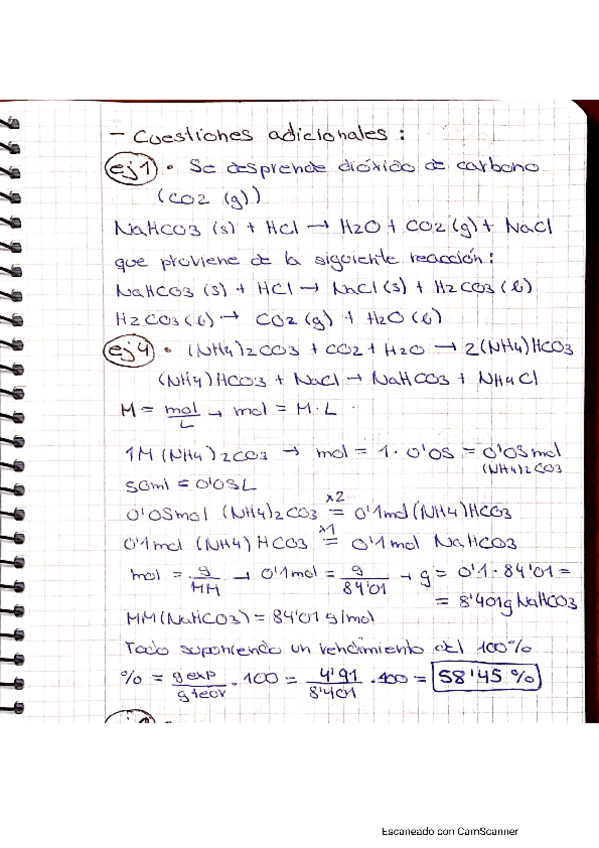 - Cuestiones adicionales:
ej1 • Se desprende dióxido de carbono
(CO2 (g))
NaHCO3 (s) + HCl → H2O + CO2 (g) + NaCl
que proviene de la siguiente reacción:
NaHCO3 (s) + HCl → NaCl (s) + H2CO3 (l)
H2CO3 (l) → CO2 (g) + H2O (l)
ej4 • (NH4)2CO3 + CO2 + H2O → 2(NH4)HCO3
(NH4)HCO3 + NaCl → NaHCO3 + NH4Cl
M = mol/L → mol = M·L
1M (NH4)2CO3 → mol = 1·0'05 = 0'05mol
(NH4)2CO3
50ml = 0'05L
x2
0'05mol (NH4)2CO3 = 0'1mol (NH4)HCO3
x1
0'1mol (NH4)HCO3 = 0'1mol NaHCO3
mol = g/MM → 0'1mol = g/84'01 → g = 0'1·84'01 =
= 8'401g NaHCO3
MM(NaHCO3) = 84'01 g/mol
Todo suponiendo un rendimiento del 100%
% = g exp/g teor · 100 = 4'91/8'401 · 100 = 58'45 %
Escaneado con CamScanner